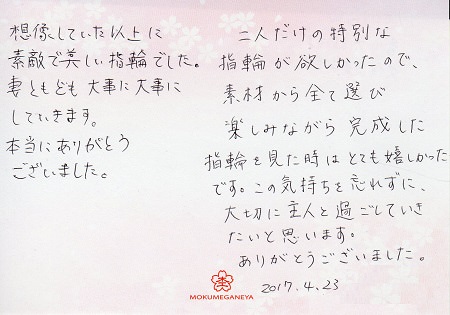 想像していた以上に
素敵で美しい指輪でした。
妻ともども大事に大事に
していきます。
本当にありがとう
ございました。
二人だけの特別な
指輪が欲しかったので、
素材から全て選び
楽しみながら完成した
指輪を見た時はとても嬉しかった
です。この気持ちを忘れずに、
大切に主人と過ごしていき
たいと思います。
ありがとうございました。
2017.4.23
MOKUMEGANEYA